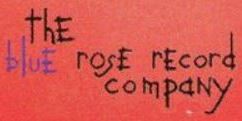 thE
bluE rosE rEcord
company